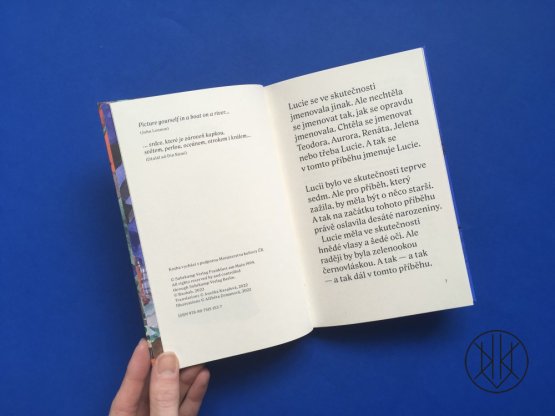 Picture yourself in a boat on a river...
(John Lennon)
... srdce, které je zároveň kapkou,
světem, perlou, oceánem, otrokem i králem...
Kniha vychází s podporou Ministerstva kultury ČR.
© Suhrkamp Verlag Frankfurt am Main
All rights reserved by and controlled
through Suhrkamp Verlag Berlin.
© Baobab, 2022
Translations © 2022
Illustrations © 2022
ISBN 978-80-
Lucie se ve skutečnosti
jmenovala jinak. Ale nechtěla
se jmenovat tak, jak se opravdu
jmenovala. Chtěla se jmenovat
Teodora, Aurora, Renáta, Jelena
nebo třeba Lucie. A tak se
v tomto příběhu jmenuje Lucie.
Lucii bylo ve skutečnosti teprve
sedm. Ale pro příběh, který
zažila, by měla být o něco starší.
A tak na začátku tohoto příběhu
právě oslavila desáté narozeniny.
Lucie měla ve skutečnosti
hnědé vlasy a šedé oči. Ale
raději by byla zelenookou
černovláskou. A tak — a tak
— a tak dál v tomto příběhu.
7